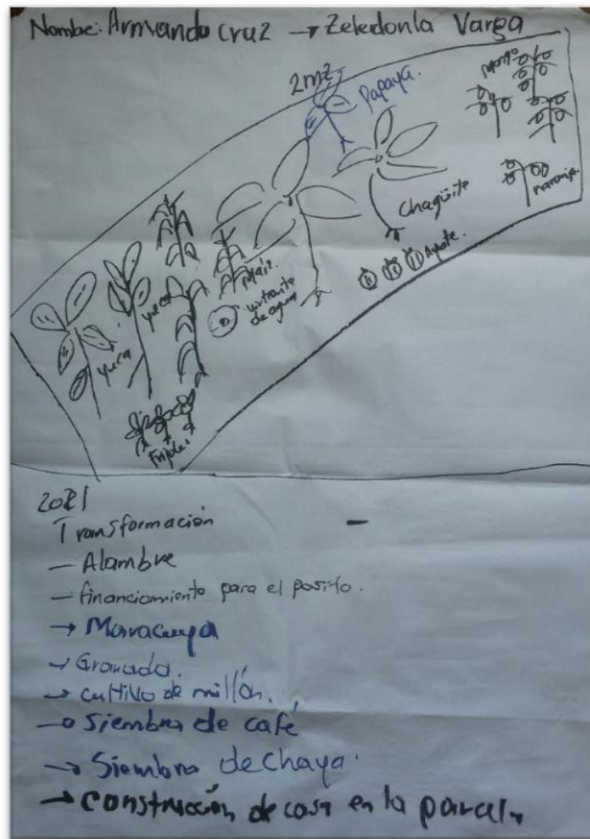 Nombe: Armando cruz → Zeledonla Varga
2mz
Papaya.
mango
naranja
Chagüite
Ayote.
Maíz
virtiente
de agua
yuca
yuca
Frijoles
2021
Transformación
— Alambre
— financiamiento para el posito.
→ Maracuya
→ Granada.
→ cultivo de millón.
→ siembra de café
→ Siembra de chaya.
→ construcción de casa en la parcela